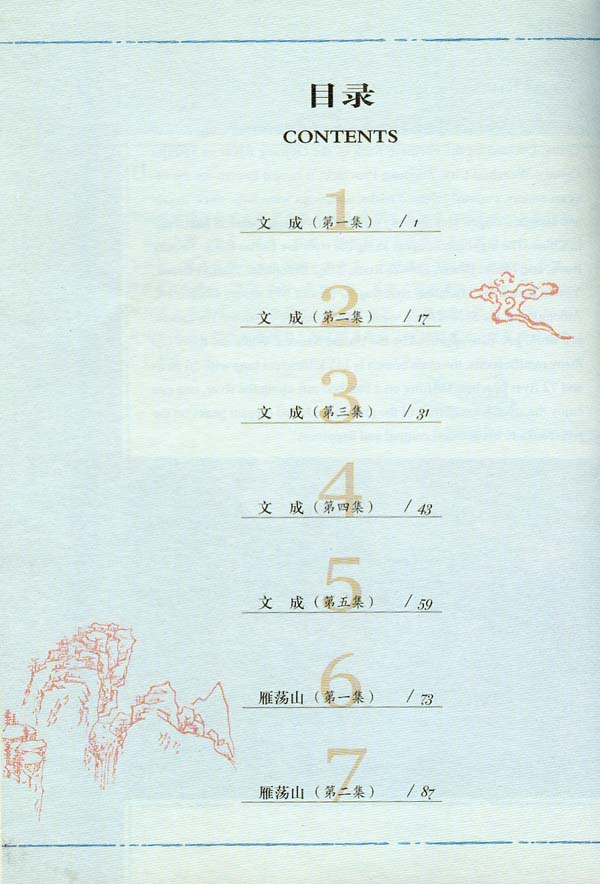 目录
CONTENTS
1
文 成（第一集） / 1
2
文 成（第二集） / 17
3
文 成（第三集） / 31
4
文 成（第四集） / 43
5
文 成（第五集） / 59
6
雁荡山（第一集） / 73
7
雁荡山（第二集） / 87